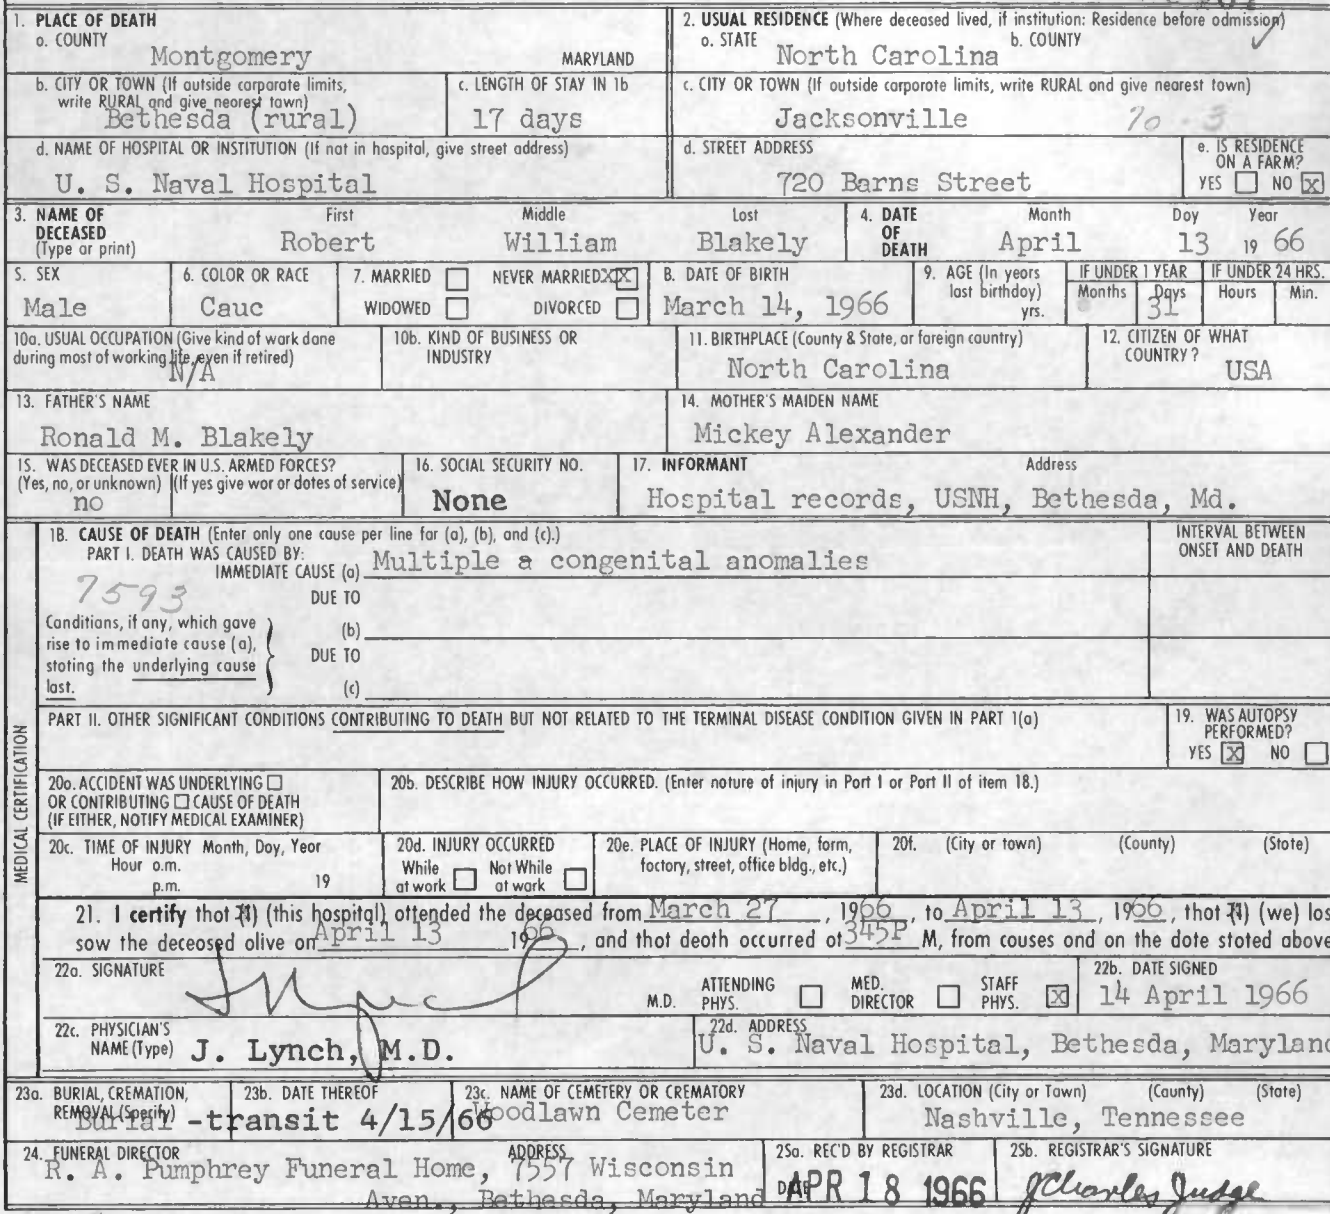 1. PLACE OF DEATH
a. COUNTY
Montgomery MARYLAND
2. USUAL RESIDENCE (Where deceased lived, if institution: Residence before admission)
a. STATE b. COUNTY
North Carolina
b. CITY OR TOWN (If outside corporate limits,
write RURAL and give nearest town)
Bethesda (rural)
c. LENGTH OF STAY IN 1b
17 days
c. CITY OR TOWN (If outside corporate limits, write RURAL and give nearest town)
Jacksonville 70 - 3
d. NAME OF HOSPITAL OR INSTITUTION (If not in hospital, give street address)
U. S. Naval Hospital
d. STREET ADDRESS
720 Barns Street
e. IS RESIDENCE
ON A FARM?
YES NO X
3. NAME OF
DECEASED
(Type or print)
First Middle Last
Robert William Blakely
4. DATE
OF
DEATH
Month Day Year
April 13 19 66
5. SEX
Male
6. COLOR OR RACE
Cauc
7. MARRIED NEVER MARRIED XX
WIDOWED DIVORCED
8. DATE OF BIRTH
March 14, 1966
9. AGE (In years
last birthday)
yrs.
IF UNDER 1 YEAR
Months Days
31
IF UNDER 24 HRS.
Hours Min.
10a. USUAL OCCUPATION (Give kind of work done
during most of working life, even if retired)
N/A
10b. KIND OF BUSINESS OR
INDUSTRY
11. BIRTHPLACE (County & State, or foreign country)
North Carolina
12. CITIZEN OF WHAT
COUNTRY?
USA
13. FATHER'S NAME
Ronald M. Blakely
14. MOTHER'S MAIDEN NAME
Mickey Alexander
15. WAS DECEASED EVER IN U.S. ARMED FORCES?
(Yes, no, or unknown) (If yes give war or dates of service)
no
16. SOCIAL SECURITY NO.
None
17. INFORMANT Address
Hospital records, USNH, Bethesda, Md.
MEDICAL CERTIFICATION
18. CAUSE OF DEATH (Enter only one cause per line for (a), (b), and (c).)
PART I. DEATH WAS CAUSED BY:
IMMEDIATE CAUSE (a) Multiple a congenital anomalies
INTERVAL BETWEEN
ONSET AND DEATH
7593
DUE TO
Conditions, if any, which gave
rise to immediate cause (a),
stating the underlying cause
last.
(b)
DUE TO
(c)
PART II. OTHER SIGNIFICANT CONDITIONS CONTRIBUTING TO DEATH BUT NOT RELATED TO THE TERMINAL DISEASE CONDITION GIVEN IN PART 1(a)
19. WAS AUTOPSY
PERFORMED?
YES X NO
20a. ACCIDENT WAS UNDERLYING
OR CONTRIBUTING CAUSE OF DEATH
(IF EITHER, NOTIFY MEDICAL EXAMINER)
20b. DESCRIBE HOW INJURY OCCURRED. (Enter nature of injury in Part I or Part II of item 18.)
20c. TIME OF INJURY Month, Day, Year
Hour a.m.
p.m. 19
20d. INJURY OCCURRED
While Not While
at work at work
20e. PLACE OF INJURY (Home, farm,
factory, street, office bldg., etc.)
20f. (City or town) (County) (State)
21. I certify that (I) (this hospital) attended the deceased from March 27, 1966, to April 13, 1966, that (I) (we) las
saw the deceased alive on April 13 1966, and that death occurred at 345P M, from causes and on the date stated above
22a. SIGNATURE
J Lynch
M.D. ATTENDING
PHYS.
MED.
DIRECTOR
STAFF
PHYS. X
22b. DATE SIGNED
14 April 1966
22c. PHYSICIAN'S
NAME (Type) J. Lynch, M.D.
22d. ADDRESS
U. S. Naval Hospital, Bethesda, Maryland
23a. BURIAL, CREMATION,
REMOVAL (Specify)
Burial -transit
23b. DATE THEREOF
4/15/66
23c. NAME OF CEMETERY OR CREMATORY
Woodlawn Cemeter
23d. LOCATION (City or Town) (County) (State)
Nashville, Tennessee
24. FUNERAL DIRECTOR ADDRESS
R. A. Pumphrey Funeral Home, 7557 Wisconsin
Aven., Bethesda, Maryland
25a. REC'D BY REGISTRAR
DATE APR 18 1966
25b. REGISTRAR'S SIGNATURE
J Charles Judge